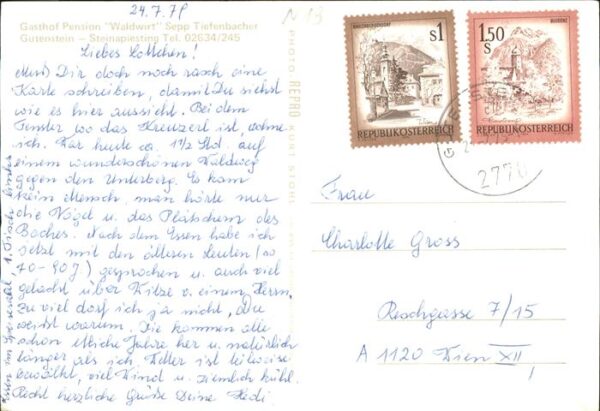 24.7.78
Gasthof Pension "Waldwirt" Sepp Tiefenbacher
Gutenstein - Steinapiesting Tel. 02634/245
Liebes Lottchen!
Dir doch noch rasch eine
Karte schreiben, damit Du siehst
wie es hier aussieht. Bei dem
Fenster wo das Kreuzerl ist, wohne
ich. War heute ca. 1 1/2 Std. auf
einem wunderschönen Waldweg
gegen den Unterberg. Es kam
kein Mensch, man hörte nur
die Vögel u. das Plätschern des
Baches. Nach dem Essen habe ich
jetzt mit den älteren Leuten (so
70-90 J.) gesprochen u. auch viel
gelacht über Witze v. einem Herrn.
Zu viel darf ich ja nicht, Du
weißt warum. Die kommen alle
schon etliche Jahre her u. natürlich
länger als ich. Wetter ist teilweise
bewölkt, viel Wind u. ziemlich kühl.
Recht herzliche Grüße Deine Hedi
im Speisesaal, 1. Tisch links
PHOTO REPRO
S1
REPUBLIK ÖSTERREICH
1.50
S
BLUDENZ
REPUBLIK ÖSTERREICH
2770
Frau
Charlotte Gross
Reschgasse 7/15
A 1120 Wien XII